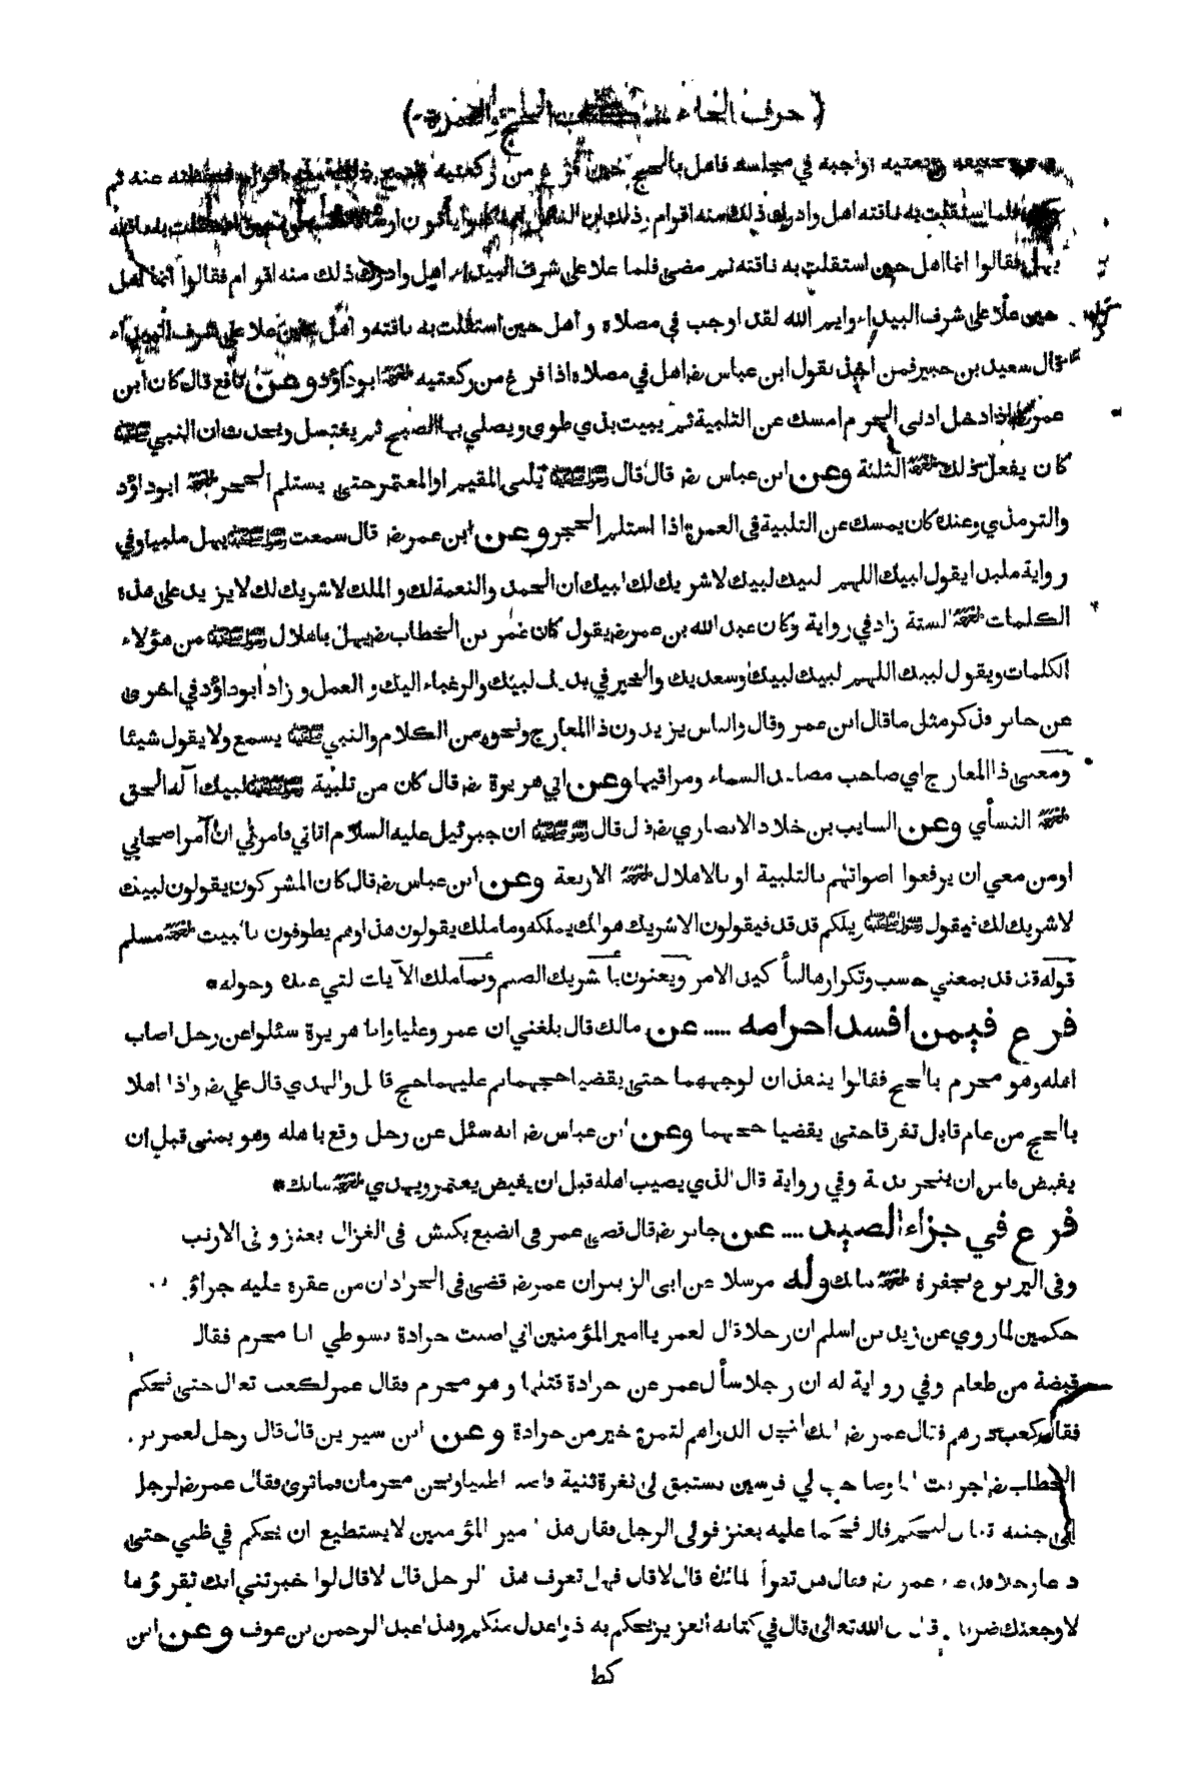 ( حرف الحاء الحج والعمرة )
ركعتيه اوجبه في مجلسه فاهل بالحج حين فرغ من ركعتيه فسمع ذلك منه اقوام فحفظته عنه ثم
فلما استقلت به ناقته اهل وادرك ذلك منه اقوام وذلك ان الناس انما كانوا يأتون ارسالا استقلت به ناقته
يهل فقالوا انما اهل حين استقلت به ناقته ثم مضى فلما علا على شرف البيداء اهل وادرك ذلك منه اقوام فقالوا انما اهل
حين علا على شرف البيداء وايم الله لقد اوجب في مصلاه و اهل حين استقلت به ناقته و اهل حين علا على شرف البيداء
قال سعيد بن جبير فمن اخذ بقول ابن عباس رض اهل في مصلاه اذا فرغ من ركعتيه ابو داؤد وعن نافع قال كان ابن
عمر اذا دخل ادنى الحرم امسك عن التلبية ثم يبيت بذي طوى ويصلي بها الصبح ثم يغتسل ويحدث ان النبي ﷺ
كان يفعل ذلك الثلثة وعن ابن عباس رض قال قال رسول الله ﷺ يلبى المقيم او المعتمر حتى يستلم الحجر ابو داؤد
والترمذي وعنده كان يمسك عن التلبية فى العمرة اذا استلم الحجر وعن ابن عمر رض قال سمعت رسول الله ﷺ يهل ملبيا وفي
رواية ملبدا يقول لبيك اللهم لبيك لبيك لا شريك لك لبيك ان الحمد والنعمة لك و الملك لا شريك لك لا يزيد على هذه
الكلمات الستة زاد في رواية وكان عبد الله بن عمر رض يقول كان عمر بن الخطاب رض يهل باهلال رسول الله ﷺ من هؤلاء
الكلمات ويقول لبيك اللهم لبيك لبيك وسعديك والخير في يديك لبيك والرغباء اليك و العمل و زاد ابو داؤد في اخرى
عن جابر فذكر مثل ما قال ابن عمر وقال والناس يزيدون ذا المعارج ونحوه من الكلام والنبي ﷺ يسمع ولا يقول شيئا
ومعنى ذا المعارج اي صاحب مصاعد السماء ومراقيها وعن ابي هريرة رض قال كان من تلبية رسول الله ﷺ لبيك اله الحق
النسأي وعن السايب بن خلاد الانصاري رض قال قال رسول الله ﷺ ان جبرئيل عليه السلام اتاني فامرني ان آمر اصحابي
او من معي ان يرفعوا اصواتهم بالتلبية او بالاهلال الاربعة وعن ابن عباس رض قال كان المشركون يقولون لبيك
لا شريك لك فيقول رسول الله ﷺ ويلكم قد قد فيقولون الا شريك هو لك يملكه وما ملك يقولون هذا وهم يطوفون بالبيت مسلم
قوله قد قد بمعنى حسب وتكرارها لتأكيد الامر ويعنون با شريك الصنم وبما ملك الآيات لتي عنده وحوله *
فرع فيمن افسد احرامه ..... عن مالك قال بلغني ان عمر وعليا وابا هريرة سئلوا عن رجل اصاب
اهله وهو محرم بالحج فقالوا ينفذان لوجههما حتى يقضيا حجهما ثم عليهما حج قابل والهدي قال علي رض واذا اهلا
بالحج من عام قابل تفرقا حتى يقضيا حجهما وعن ابن عباس رض انه سئل عن رجل وقع باهله وهو بمنى قبل ان
يفيض فامره ان ينحر بدنة وفي رواية قال الذي يصيب اهله قبل ان يفيض يعتمر ويهدي مالك *
فرع في جزاء الصيد .... عن جابر رض قال قضى عمر في الضبع بكبش فى الغزال بعنز و فى الارنب
وفى اليربوع بجفرة مالك وله مرسلا عن ابى الزبير ان عمر رض قضى فى الجراد ان من عقره عليه جزاؤ
حكمين لما روي عن زيد بن اسلم ان رجلا قال لعمر يا امير المؤمنين اني اصبت جرادة بسوطي انا محرم فقال
قبضة من طعام وفي رواية له ان رجلا سأل عمر عن جرادة قتلها وهو محرم فقال عمر لكعب تعال حتى نحكم
فقال كعب درهم فقال عمر رض انك لتجد الدراهم لتمرة خير من جرادة وعن ابن سيرين قال قال رجل لعمر بن
الخطاب رض اجريت انا وصاحب لي فرسين نستبق الى ثغرة ثنية فاصبنا ظبيا ونحن محرمان فما ترى فقال عمر رض لرجل
الى جنبه تعال لنحكم قال فحكما عليه بعنز فولى الرجل فقال هذا امير المؤمنين لا يستطيع ان يحكم في ظبي حتى
دعا رجلا عمر رض فقال هل تقرأ المائدة قال لا قال فهل تعرف هذا الرجل قال لا قال لوا خبرتني انك تقرؤها
لاوجعتك ضربا ان الله تعالى قال في كتابه العزيز يحكم به ذوا عدل منكم وهذا عبد الرحمن بن عوف وعن ابن
كط